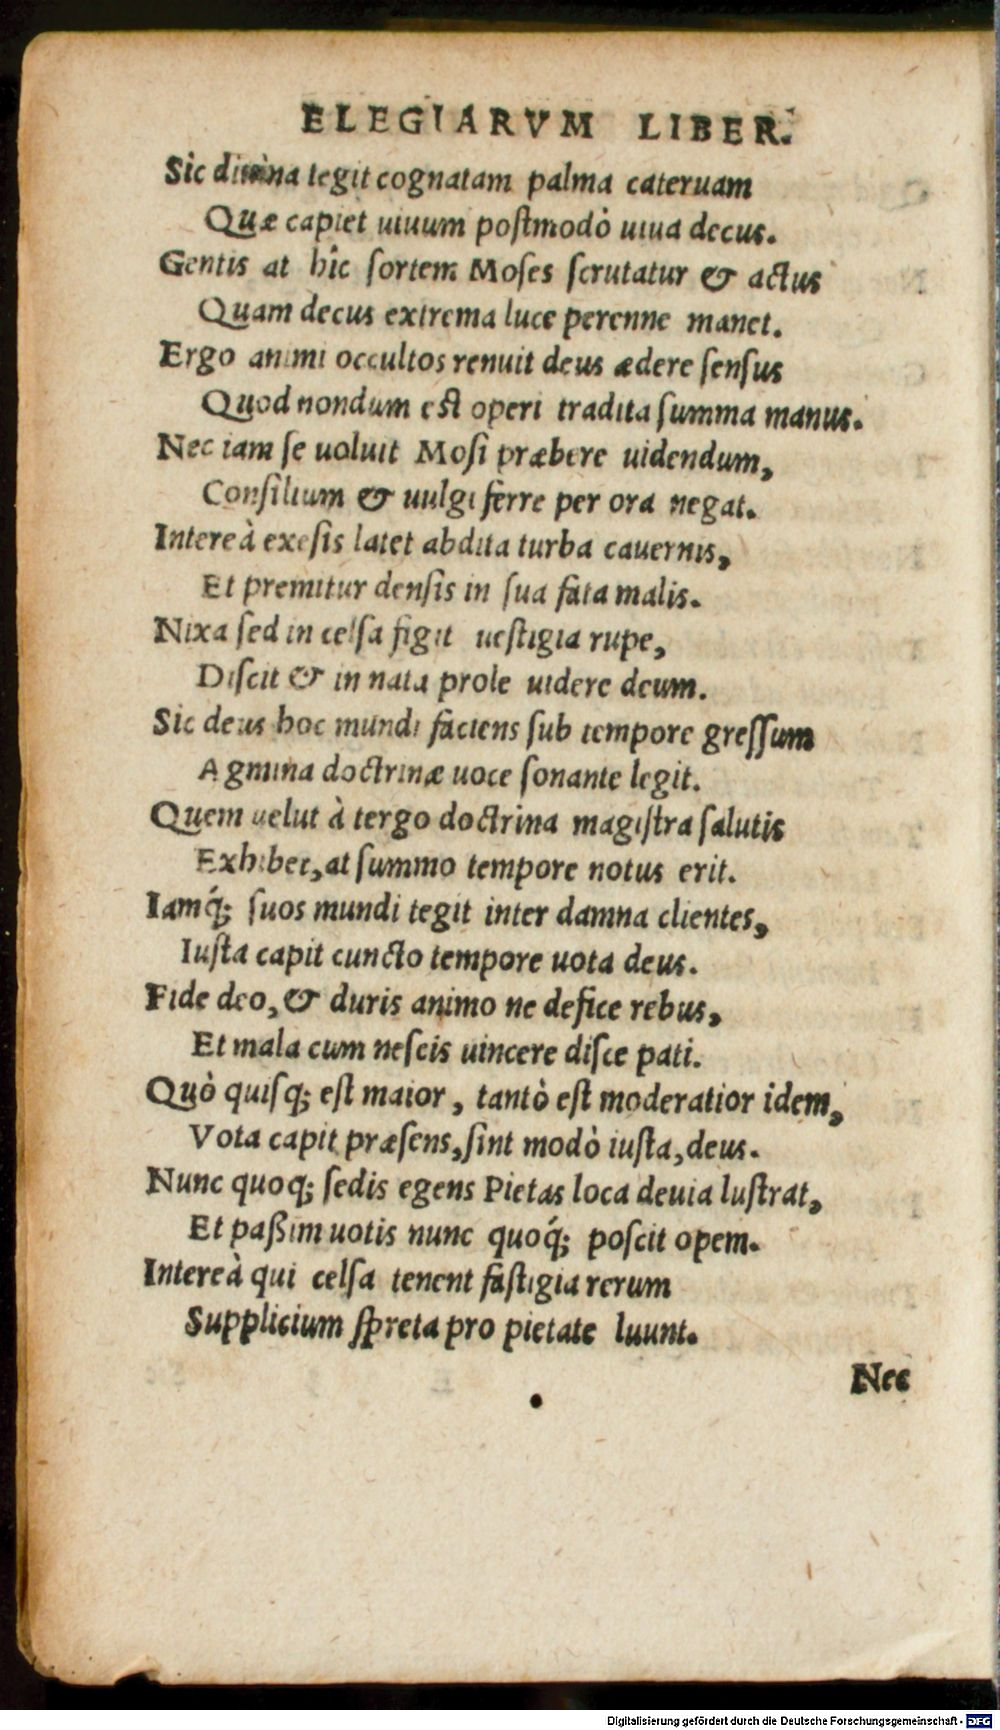 ELEGIARVM LIBER.
Sic diuina tegit cognatam palma cateruam
Quæ capiet uiuum postmodò uiua decus.
Gentis at hîc sortem Moses scrutatur & actus
Quam decus extrema luce perenne manet.
Ergo animi occultos renuit deus ædere sensus
Quod nondum est operi tradita summa manus.
Nec iam se uoluit Mosi præbere uidendum,
Consilium & uulgi ferre per ora negat.
Intereà exesis latet abdita turba cauernis,
Et premitur densis in sua fata malis.
Nixa sed in celsa figit uestigia rupe,
Discit & in nata prole uidere deum.
Sic deus hoc mundi faciens sub tempore gressum
Agmina doctrinæ uoce sonante legit.
Quem uelut à tergo doctrina magistra salutis
Exhibet, at summo tempore notus erit.
Iamq́; suos mundi tegit inter damna clientes,
Iusta capit cuncto tempore uota deus.
Fide deo, & duris animo ne defice rebus,
Et mala cum nescis uincere disce pati.
Quò quisq; est maior, tantò est moderatior idem,
Vota capit præsens, sint modò iusta, deus.
Nunc quoq; sedis egens Pietas loca deuia lustrat,
Et paßim uotis nunc quoq́; poscit opem.
Intereà qui celsa tenent fastigia rerum
Supplicium spreta pro pietate luunt.
Nec
Digitalisierung gefördert durch die Deutsche Forschungsgemeinschaft - DFG